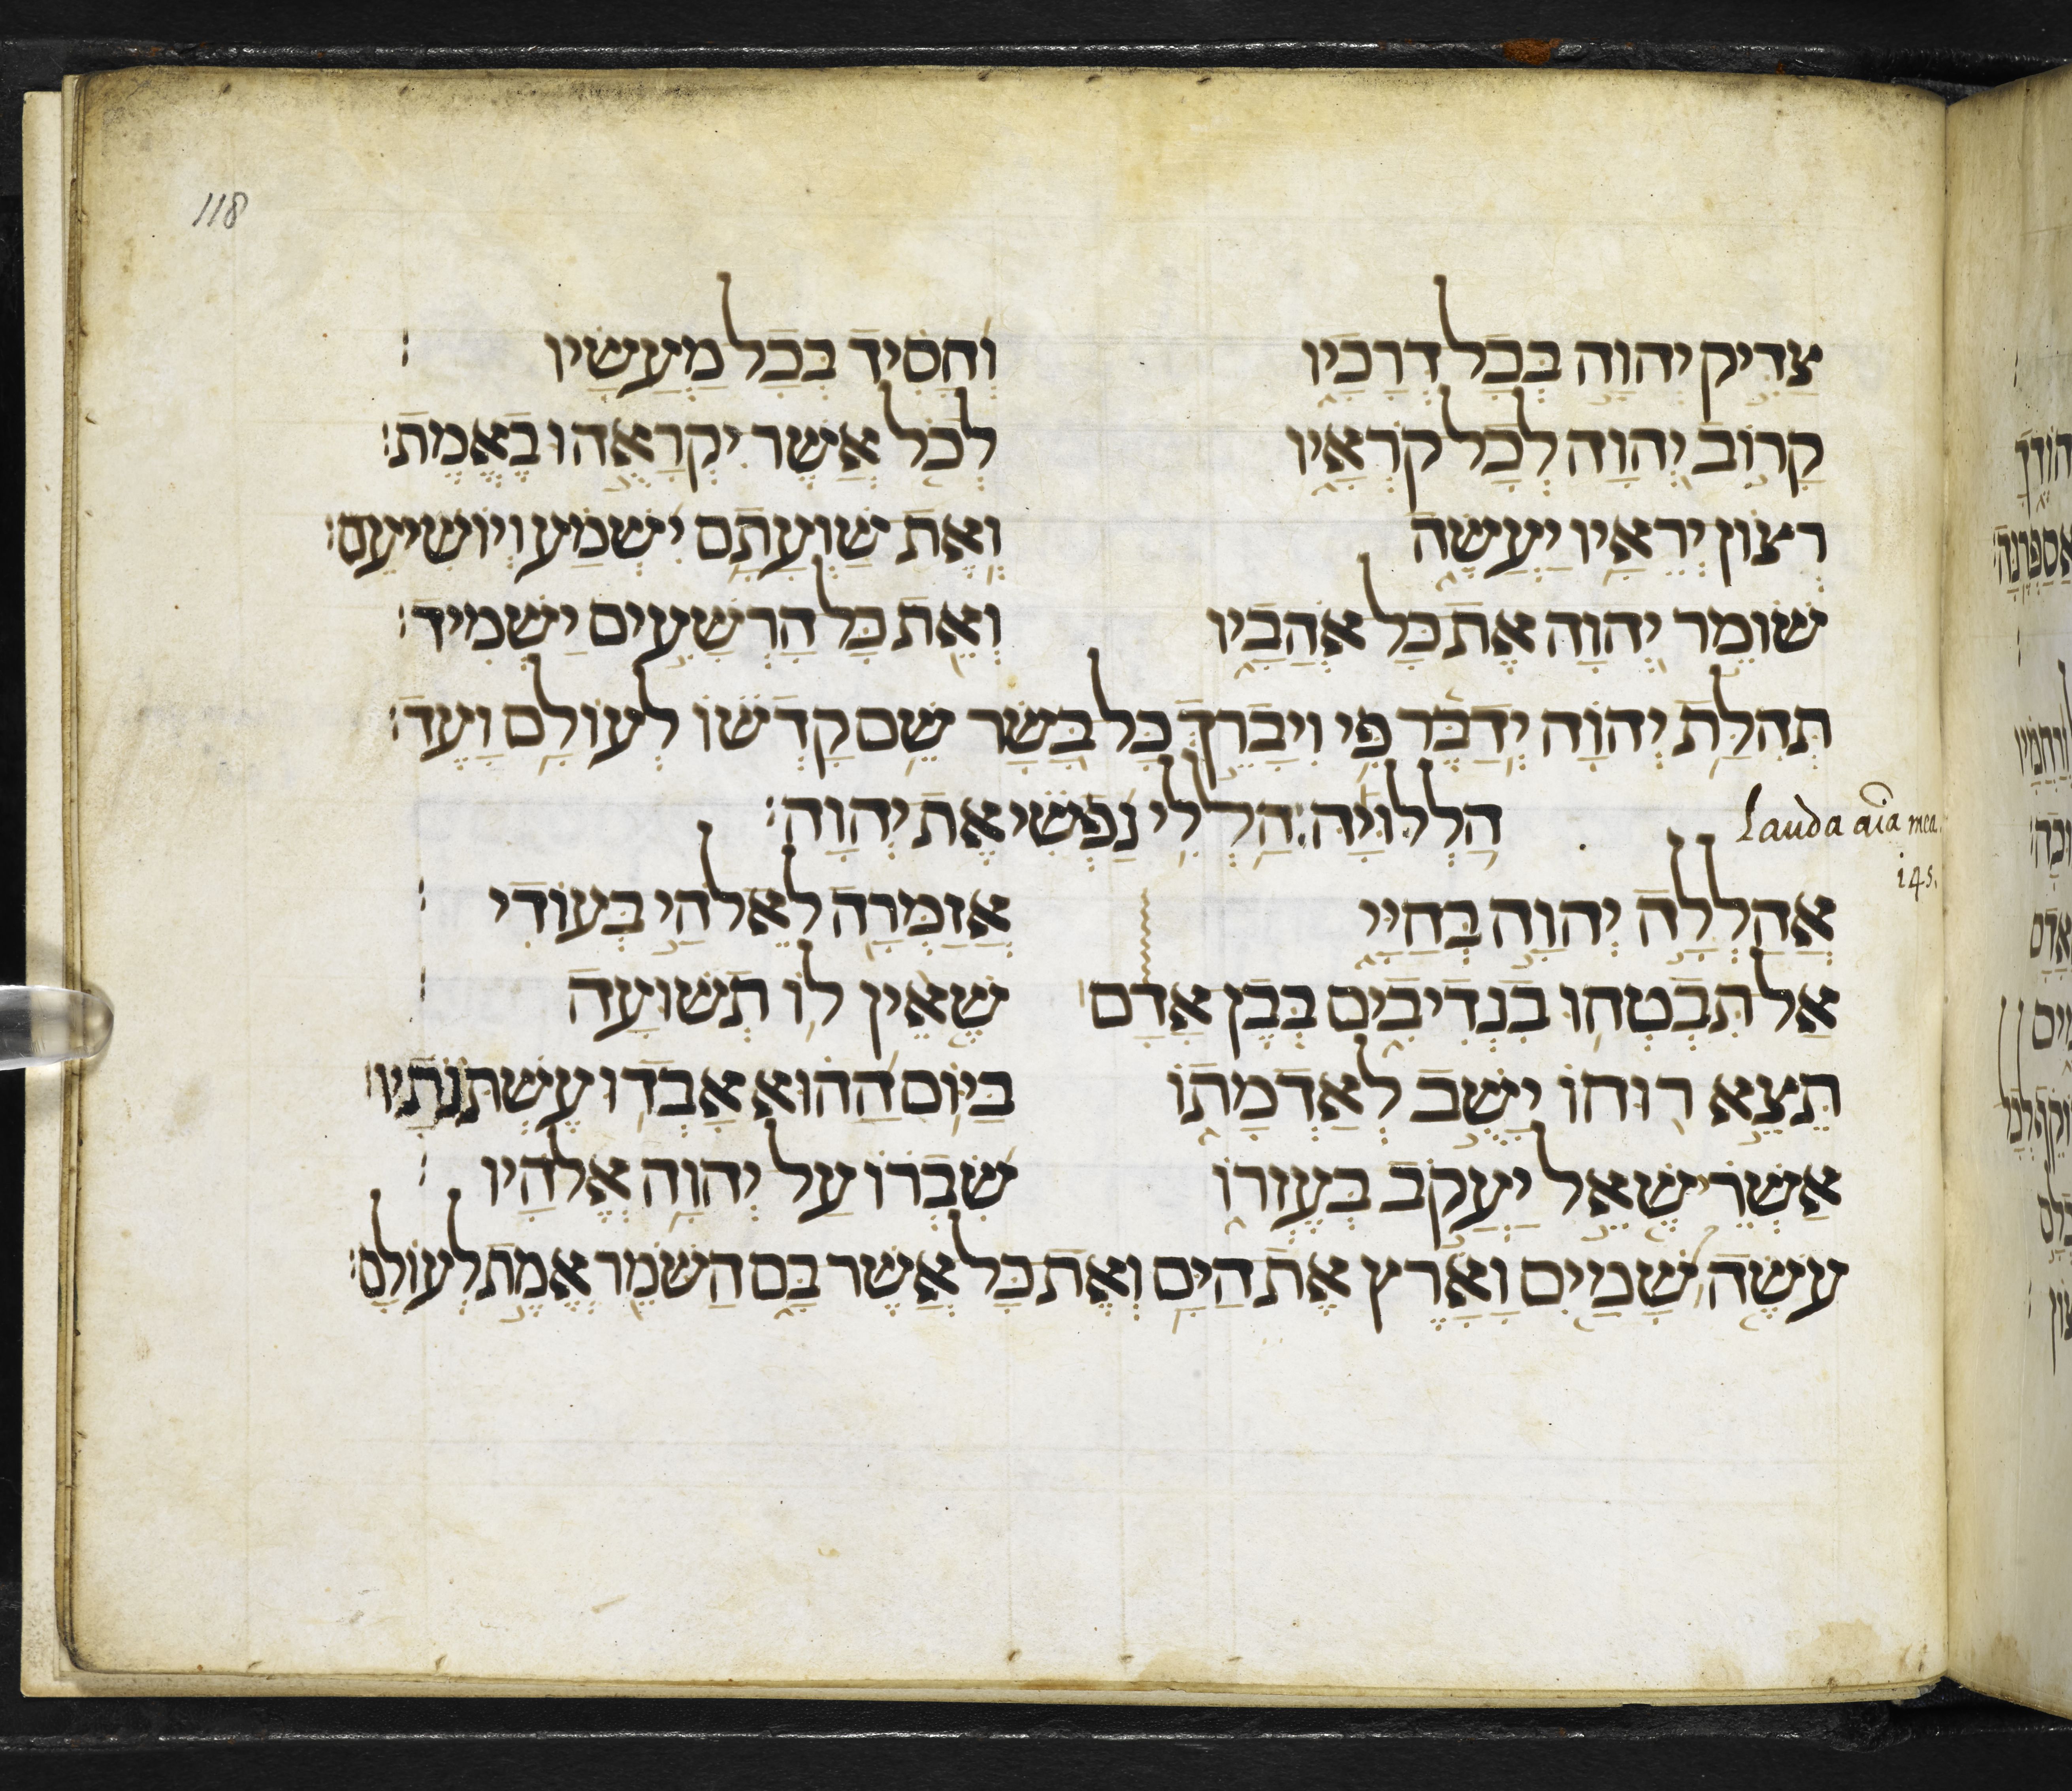 118
צַדִּיק יְהוָה בְּכָל דְּרָכָיו וְחָסִיד בְּכָל מַעֲשָׂיו׃
קָרוֹב יְהוָה לְכָל קֹרְאָיו לְכֹל אֲשֶׁר יִקְרָאֻהוּ בֶאֱמֶת׃
רְצוֹן יְרֵאָיו יַעֲשֶׂה וְאֶת שַׁוְעָתָם יִשְׁמַע וְיוֹשִׁיעֵם׃
שׁוֹמֵר יְהוָה אֶת כָּל אֹהֲבָיו וְאֵת כָּל הָרְשָׁעִים יַשְׁמִיד׃
תְּהִלַּת יְהוָה יְדַבֶּר פִּי וִיבָרֵךְ כָּל בָּשָׂר שֵׁם קָדְשׁוֹ לְעוֹלָם וָעֶד׃
הַלְלוּיָהּ הַלְלִי נַפְשִׁי אֶת יְהוָה׃
Lauda aĩa mea.
145.
אֲהַלְלָה יְהוָה בְּחַיָּי אֲזַמְּרָה לֵאלֹהַי בְּעוֹדִי׃
אַל תִּבְטְחוּ בִנְדִיבִים בְּבֶן אָדָם שֶׁאֵין לוֹ תְשׁוּעָה׃
תֵּצֵא רוּחוֹ יָשֻׁב לְאַדְמָתוֹ בַּיּוֹם הַהוּא אָבְדוּ עֶשְׁתֹּנֹתָיו׃
אַשְׁרֵי שֶׁאֵל יַעֲקֹב בְּעֶזְרוֹ שִׂבְרוֹ עַל יְהוָה אֱלֹהָיו׃
עֹשֶׂה שָׁמַיִם וָאָרֶץ אֶת הַיָּם וְאֶת כָּל אֲשֶׁר בָּם הַשֹּׁמֵר אֱמֶת לְעוֹלָם׃